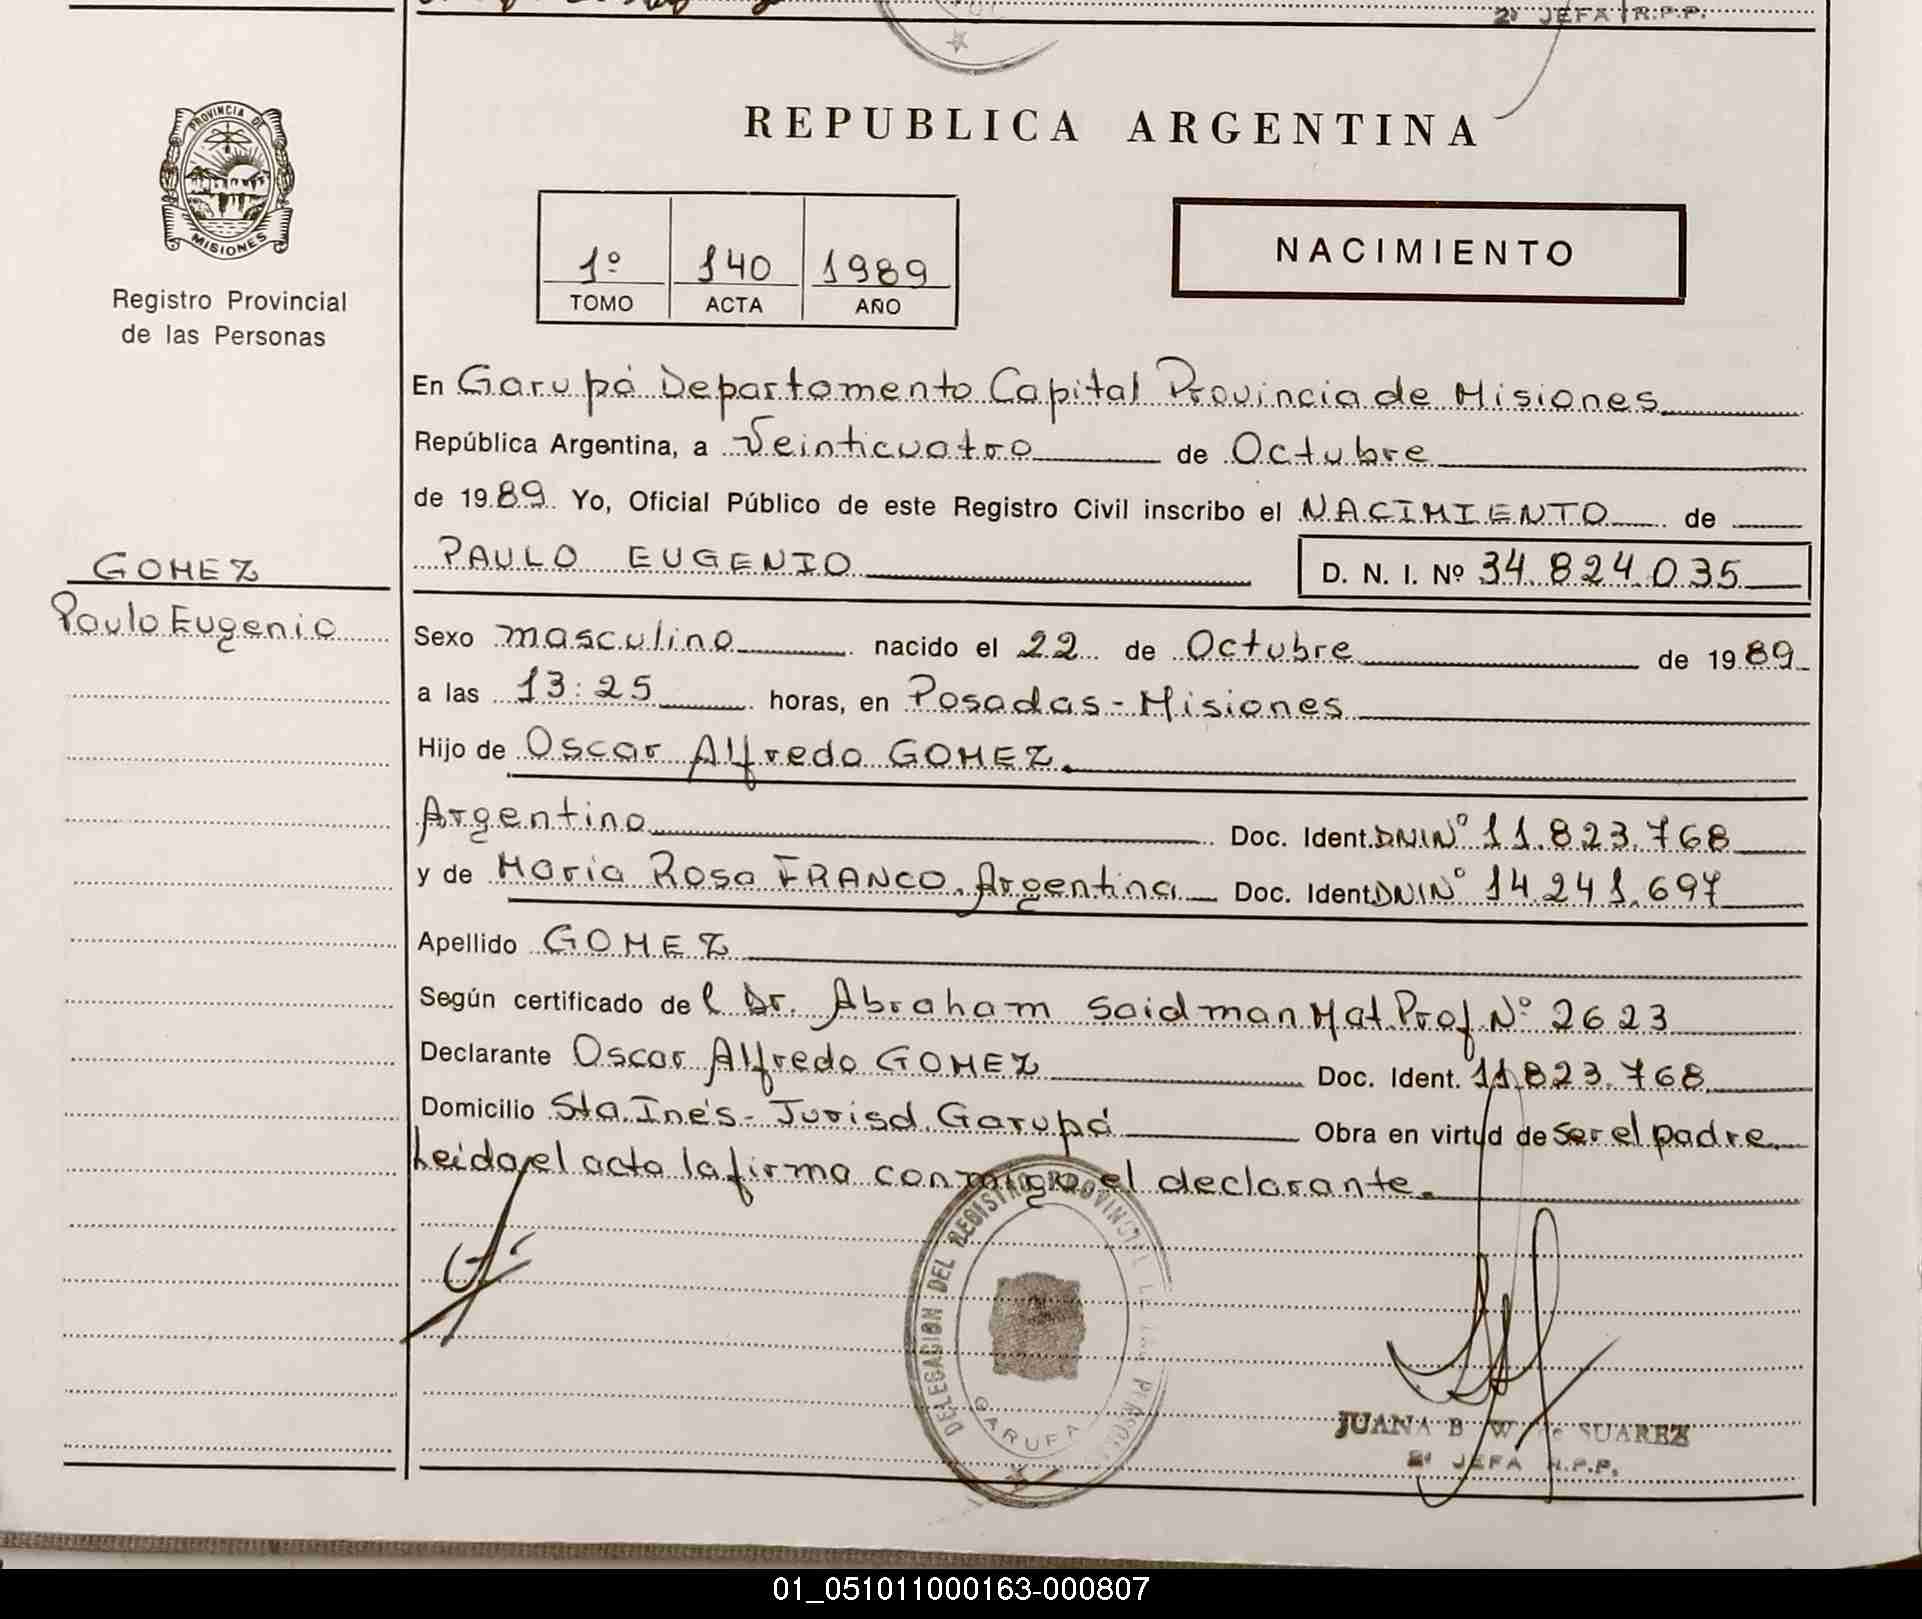 2ª JEFA R.P.P.
PROVINCIA DE
MISIONES
Registro Provincial
de las Personas
REPUBLICA ARGENTINA
1º 140 1989
TOMO ACTA AÑO
NACIMIENTO
En Garupá Departamento Capital Provincia de Misiones
República Argentina, a Veinticuatro de Octubre
de 1989 Yo, Oficial Público de este Registro Civil inscribo el NACIMIENTO de
GOMEZ
PAULO EUGENIO D. N. I. Nº 34.824.035
Paulo Eugenio
Sexo masculino nacido el 22 de Octubre de 1989
a las 13:25 horas, en Posadas-Misiones
Hijo de Oscar Alfredo GOMEZ.
Argentino Doc. Ident. DNIN° 11.823.768
y de Maria Rosa FRANCO. Argentina Doc. Ident. DNIN° 14.241.697
Apellido GOMEZ
Según certificado del Dr. Abraham Saidman Mat. Prof. N° 2623
Declarante Oscar Alfredo GOMEZ Doc. Ident. 11.823.768
Domicilio Sta. Inés- Jurisd. Garupá Obra en virtud de Ser el padre.
Leida el acta la firma conmigo el declarante.
DELEGACION DEL REGISTRO PROVINCIAL
GARUPA
JUANA B W de SUAREZ
2ª JEFA R.P.P.
01_051011000163-000807